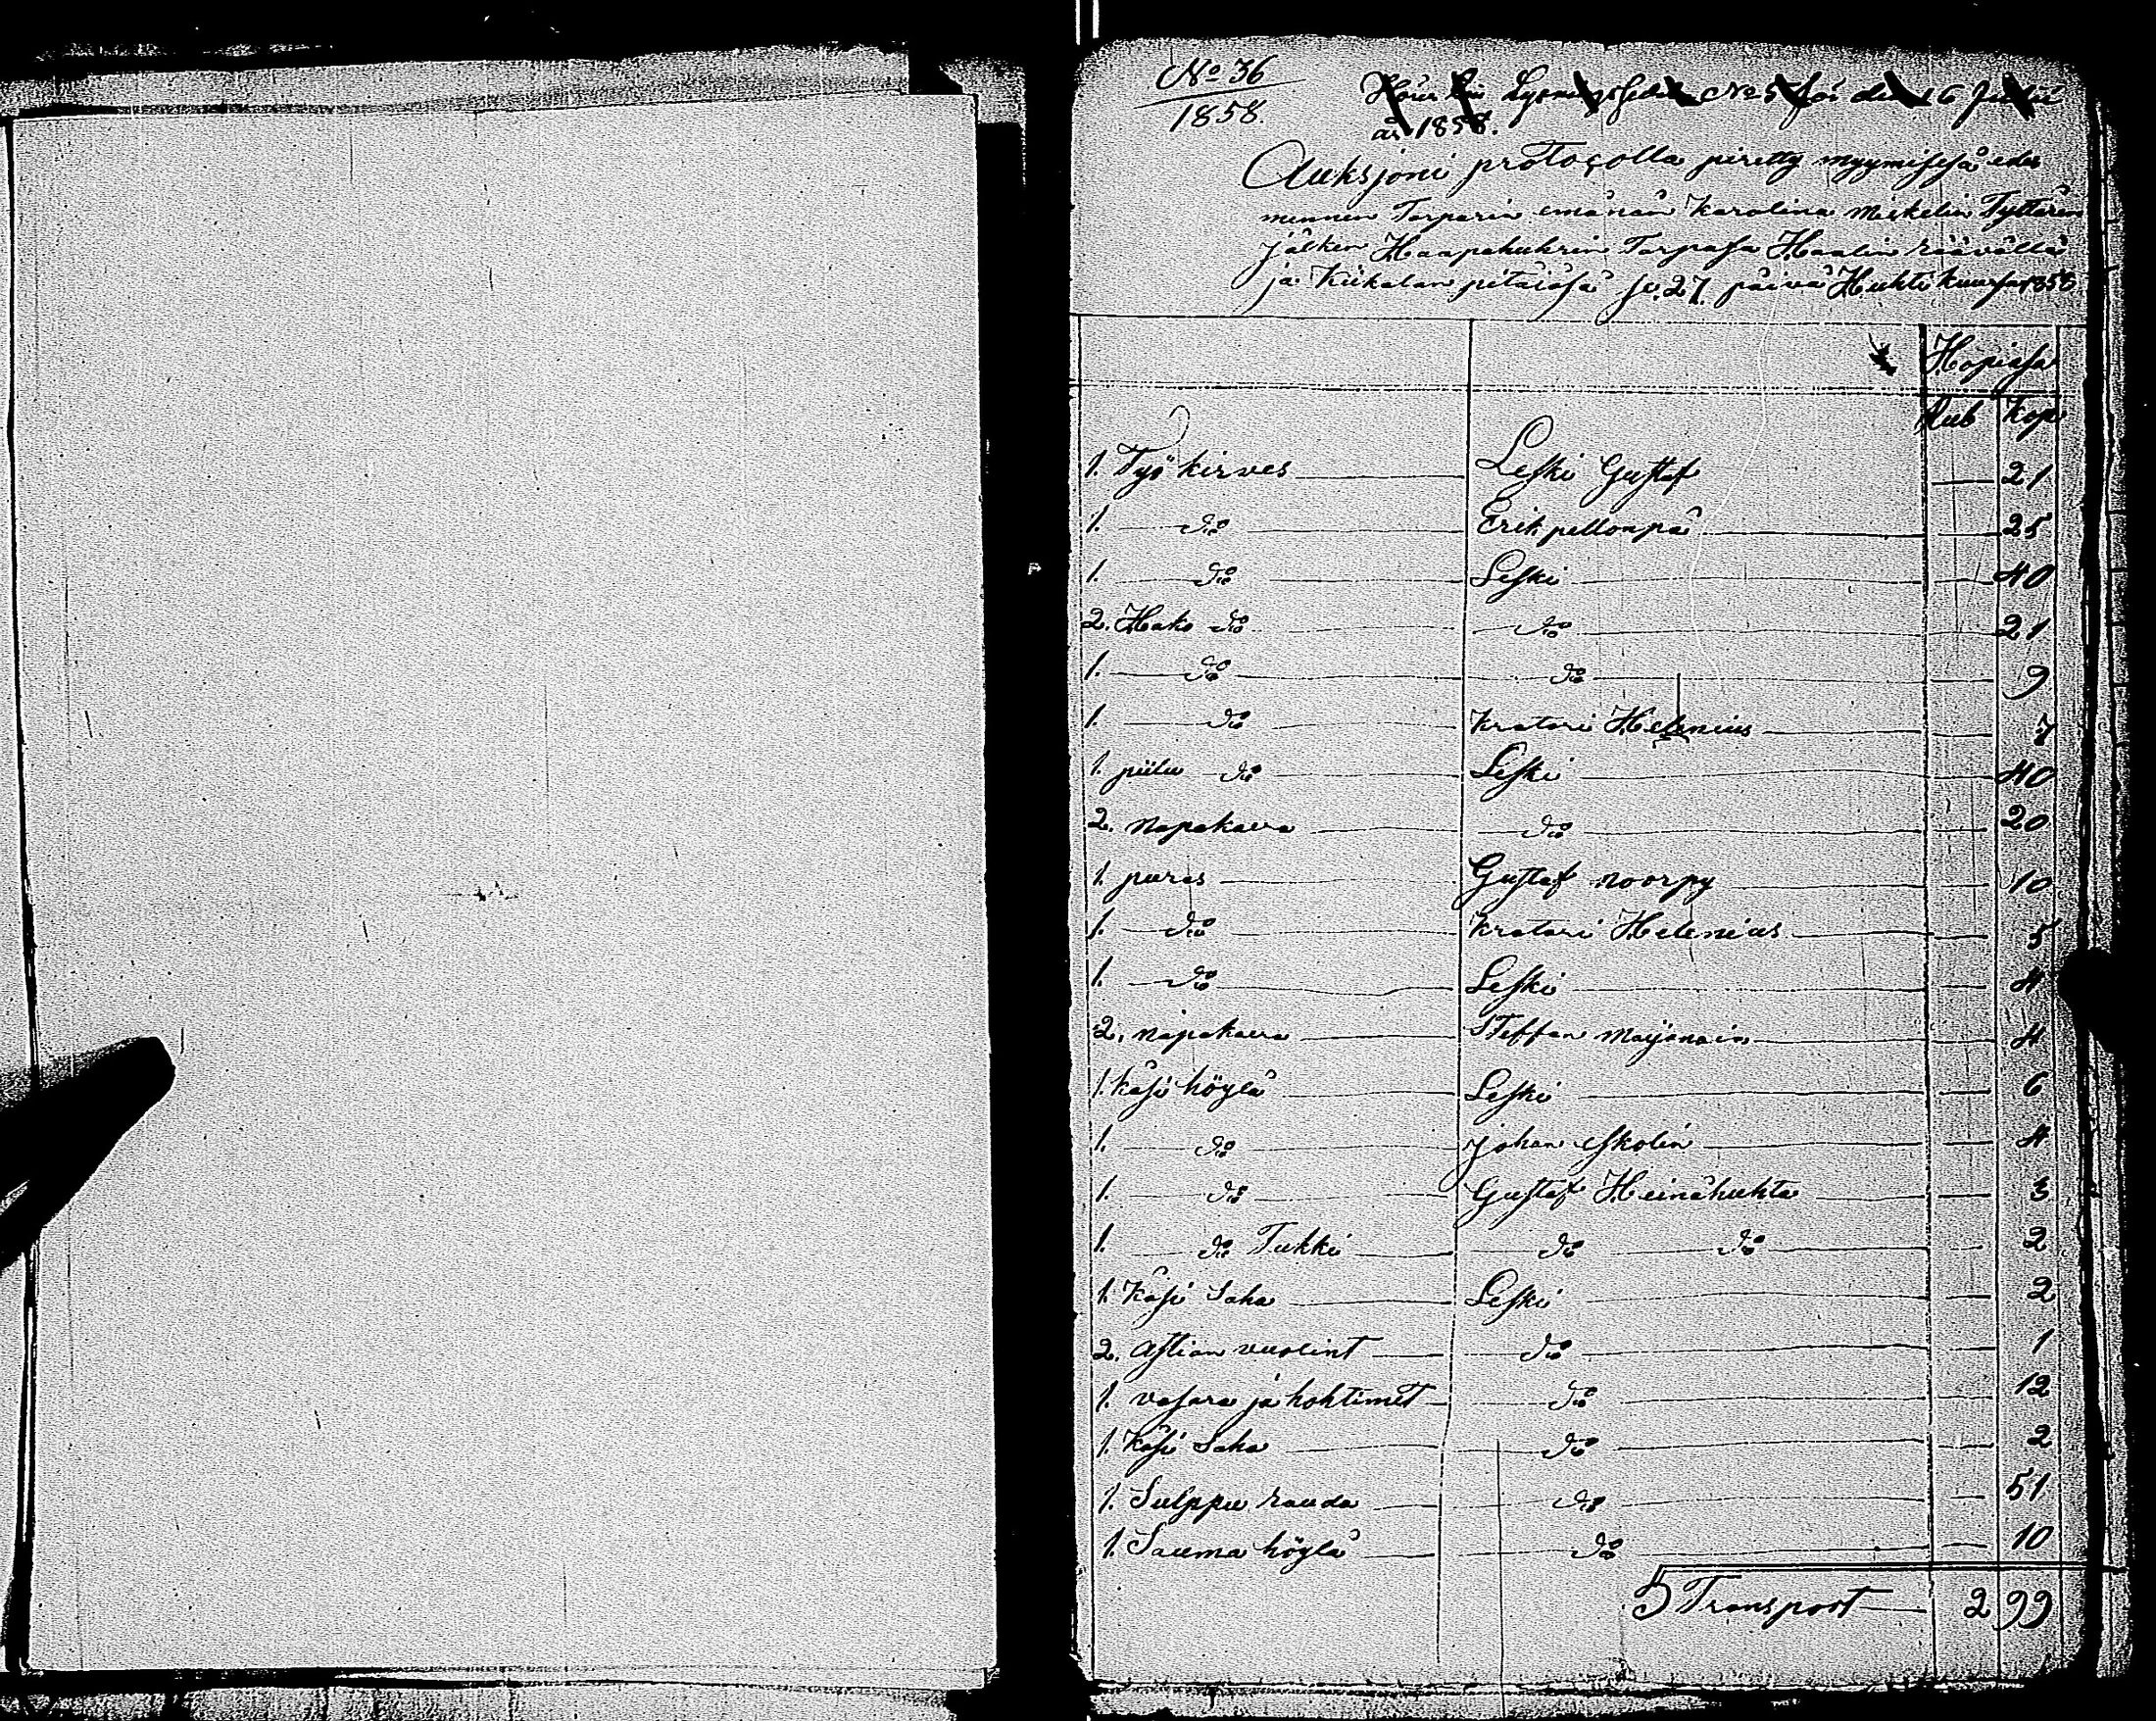 No 36
1858.
No 5 för den 16 Juli
år 1858.
Auksjoni protocolla piretty myymisesä edes
mennen Torparin emänän Karolina Miskelin Tyttären
jälken Haapahuhrin Torpassa Haalin räävällä
ja Kiikalan pitäiäsä se. 27. päivä Huhti kuusa 1858
Hopiassa
Rub Kop
1. Työ kirves Leski Gustaf 21
1. do Erik pellonpä 25
1. do Leski 40
2. Hako do do 21
1. do do 9
1. do Kratari Helenius 7
1. piilu do Leski 40
2. napakaira do 20
1. puras Gustaf noorpy 10
1. do Kratari Helenius 5
1. do Leski 4
2. napakaira Steffan Marjanain 4
1. Käsi höylä Leski 6
1. do Johan Eskolin 4
1. do Gustaf Heinähuhta 3
1. do Tukki do do 2
1. Käsi Saha Leski 2
2. astian vuolint do 1
1. vasara ja hohtimet do 12
1. Käsi Saha do 2
1. Sulppu rauda do 51
1. Sauma höylä do 10
Transport 2 99